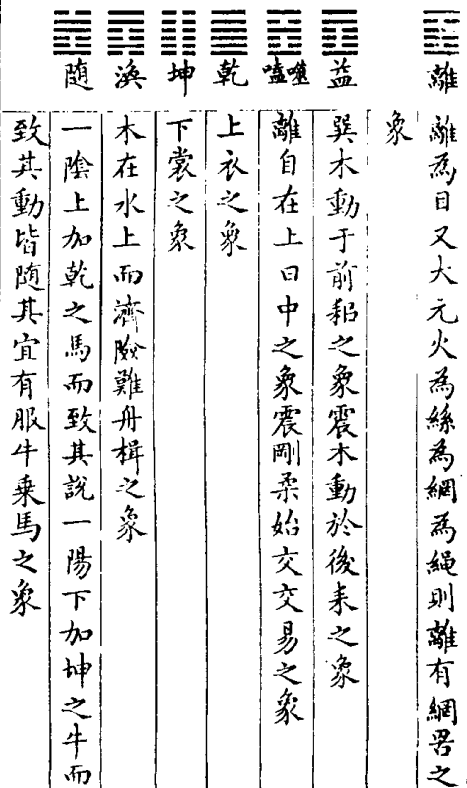 離
離為目又大元火為絲為網為繩則離有網罟之
象
益
巽木動于前耜之象震木動於後耒之象
噬嗑
離自在上日中之象震剛柔始交交易之象
乾
上衣之象
坤
下裳之象
渙
木在水上而濟險難舟楫之象
随
一陰上加乾之馬而致其說一陽下加坤之牛而
致其動皆隨其宜有服牛乗馬之象